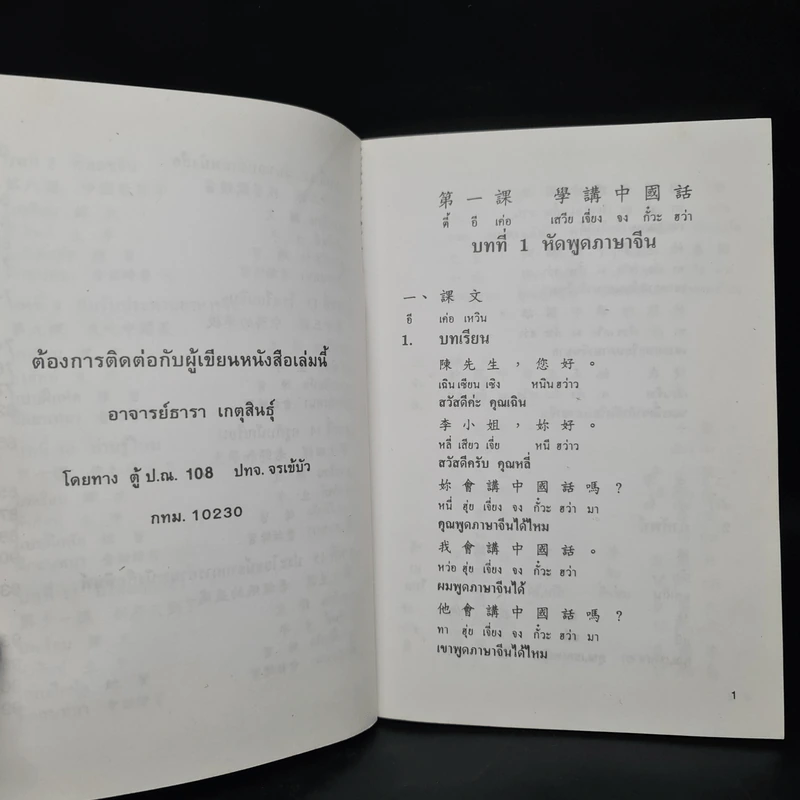 ต้องการติดต่อกับผู้เขียนหนังสือเล่มนี้
อาจารย์ธารา เกตุสินธุ์
โดยทาง ตู้ ป.ณ. 108 ปทจ. จรเข้บัว
กทม. 10230
第一課 學講中國話
ตี้ อี เค่อ เสวีย เจี่ยง จง กั๋วะ ฮว่า
บทที่ 1 หัดพูดภาษาจีน
一、課文
อี เค่อ เหวิน
1. บทเรียน
陳先生，您好。
เฉิน เซียน เชิง หนิน ฮว่าว
สวัสดีค่ะ คุณเฉิน
李小姐，妳好。
หลี่ เสียว เจี่ย หนี ฮว่าว
สวัสดีครับ คุณหลี่
妳會講中國話嗎？
หนี่ ฮุ่ย เจี่ยง จง กั๋วะ ฮว่า มา
คุณพูดภาษาจีนได้ไหม
我會講中國話。
หว่อ ฮุ่ย เจี่ยง จง กั๋วะ ฮว่า
ผมพูดภาษาจีนได้
他會講中國話嗎？
ทา ฮุ่ย เจี่ยง จง กั๋วะ ฮว่า มา
เขาพูดภาษาจีนได้ไหม
1